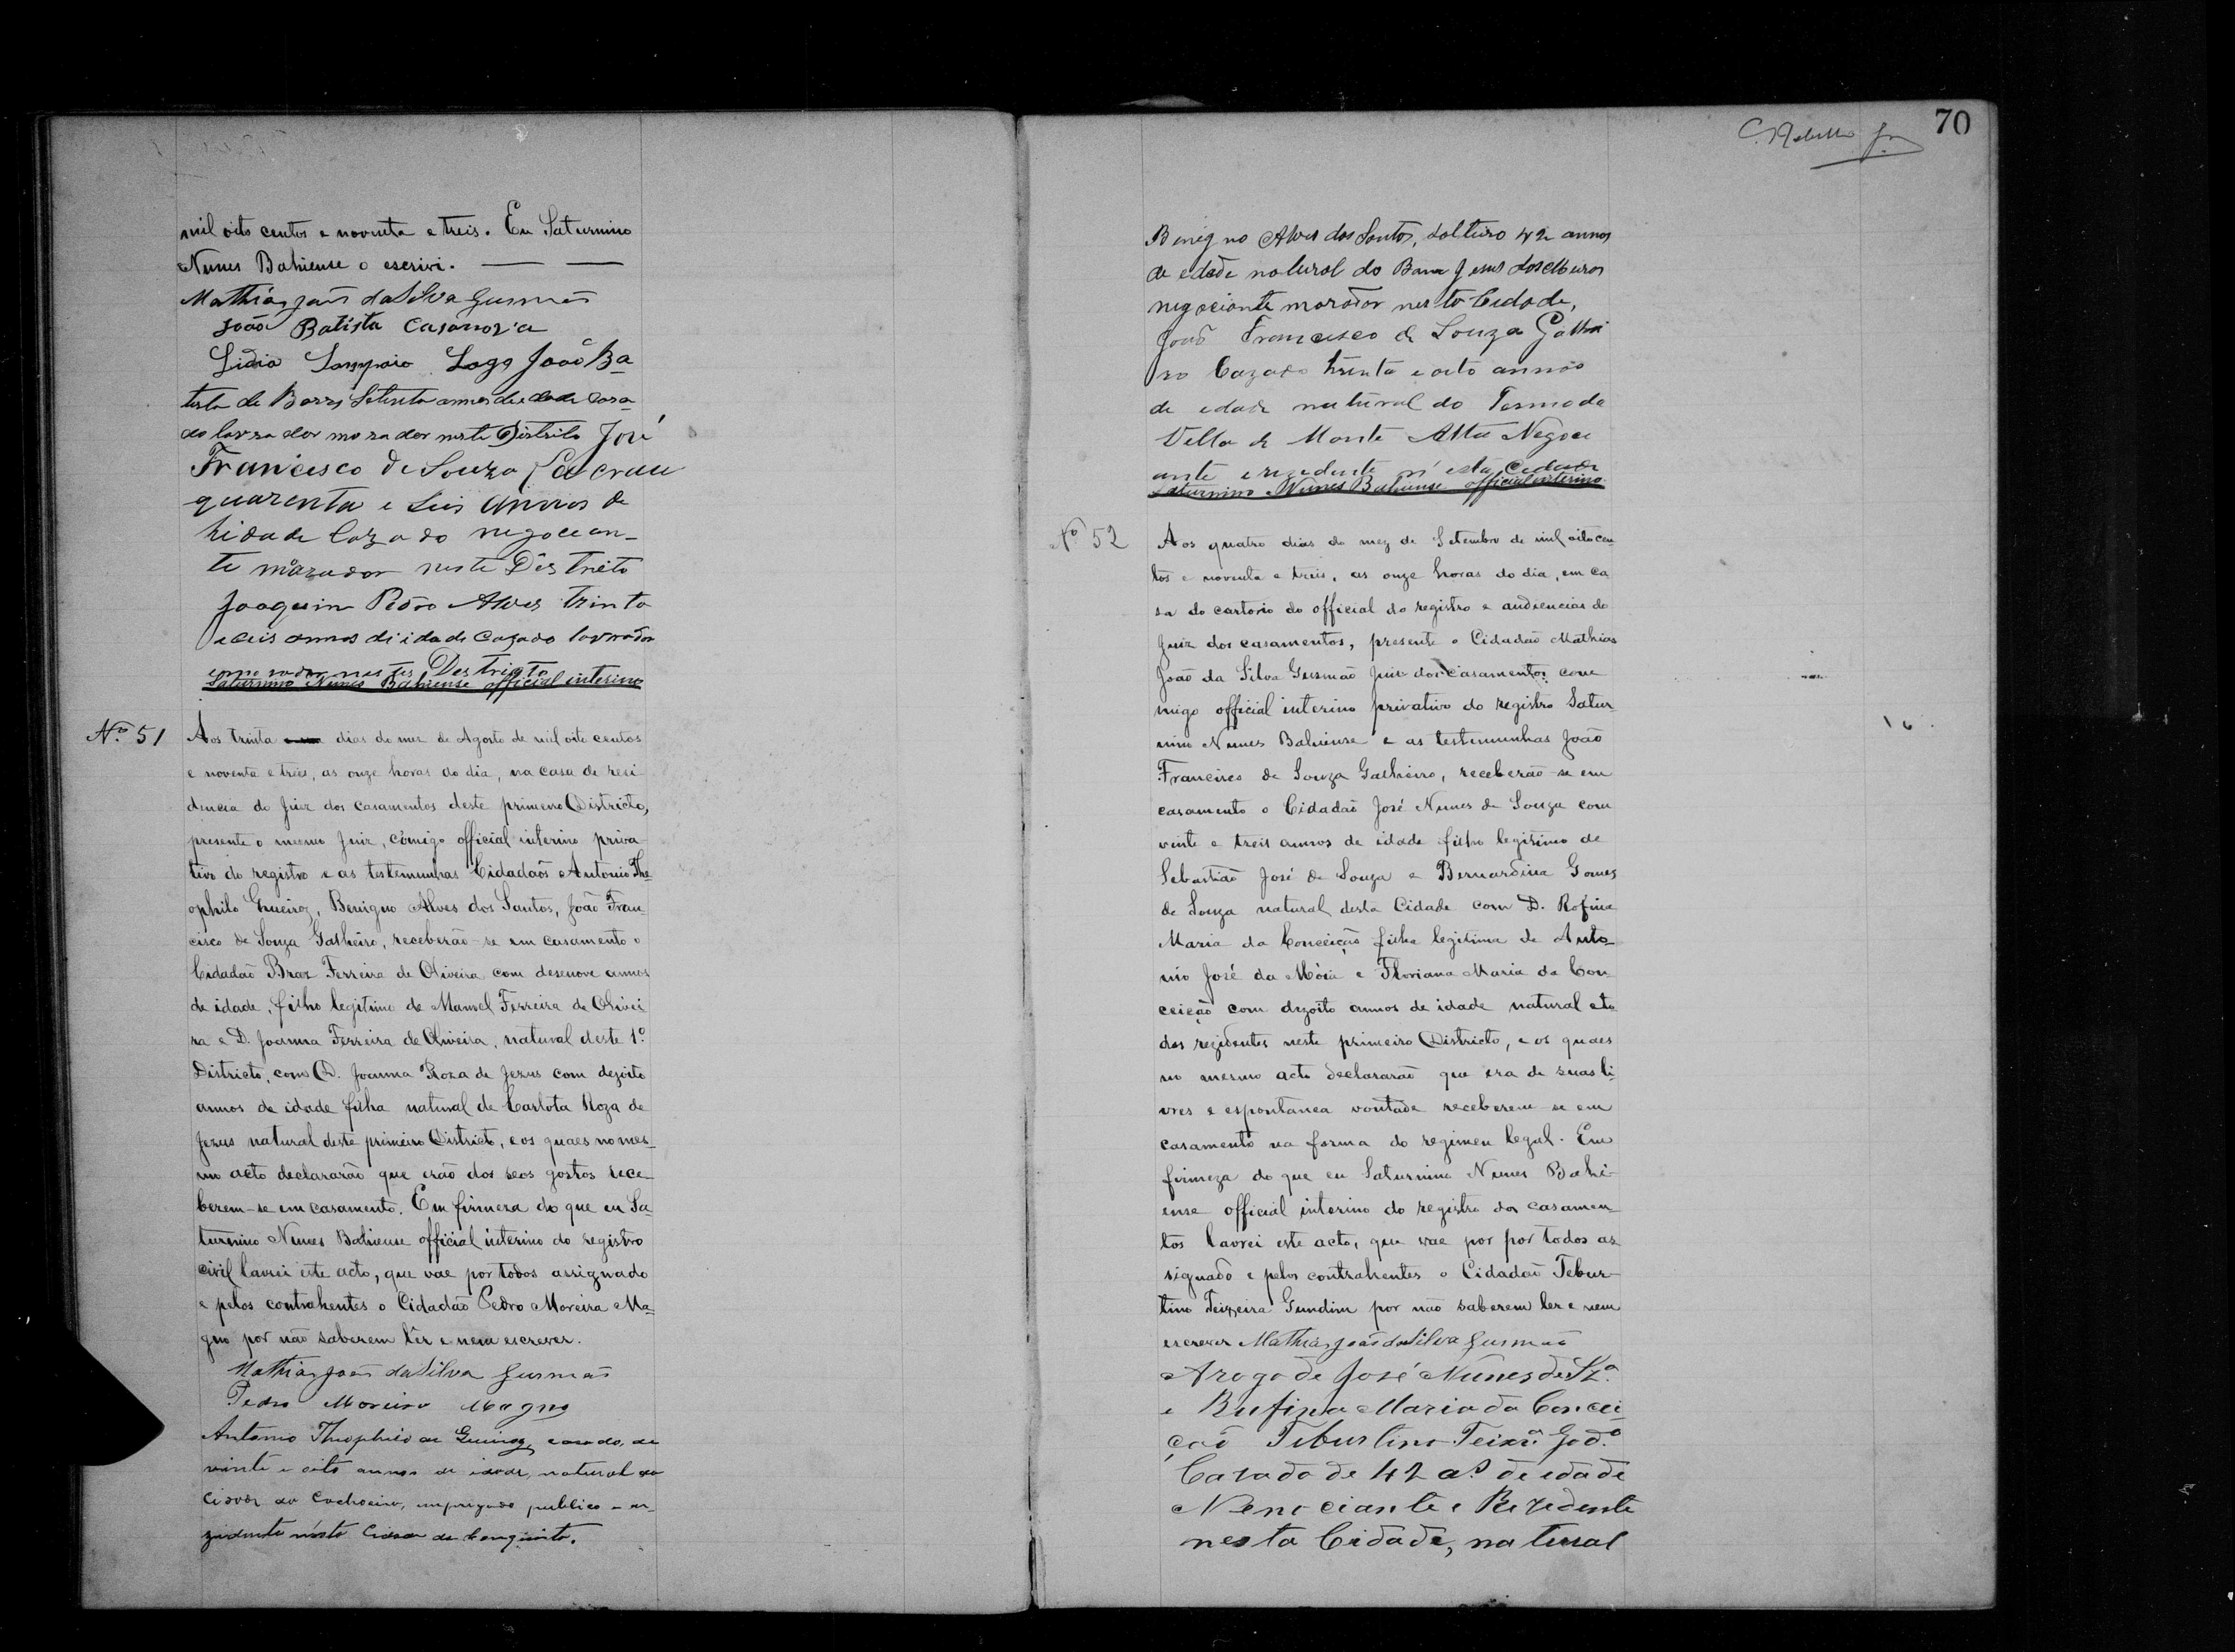 mil oito centos e noventa e treis. Eu Saturnino
Nunes Bahiense o escrivi.
Mathias João da Silva Gusmão
João Batista Casanova
Lidio Sampaio Lago João Ba
tista de Barros Setenta annos de edade Casa
do lavrador morador neste Distrito José
Francisco de Souza
quarenta e Seis annos de
hidade Cazado negocean-
te mórador neste Destrito
Joaquim Pedro Alves trinta
e ceis annos di idade Cazado lavrador
e morador nestes Destricto
Saturnino Nunes Bahiense official interino
Nº 51
Aos trinta dias do mez de Agosto de mil oito centos
e noventa e tréis, as onze horas do dia, na casa de resi
dencia do Juiz dos casamentos deste primeiro Districto,
presente o mesmo Juiz, cómigo official interino priva
tivo do registro e as testemunhas Cidadãos Antonio The
ophilo Gueiroz, Benigno Alves dos Santos, João Fran
cisco de Souza Galheiro, receberão-se em casamento o
Cidadão Braz Ferreira de Oliveira com desenove annos
de idade, filho legitimo de Manoel Ferreira de Olivei
ra e D. Joanna Ferreira de Oliveira, natural deste 1º
Districto, com D. Joanna Roza de Jezus com dezoito
annos de idade filha natural de Carlota Roza de
Jezus natural deste primeiro Districto, e os quaes no mes-
mo acto declararão que erão dos seos gostos rece-
berem-se em casamento. Em firmeza do que eu Sa-
turnino Nunes Bahiense official interino do registro
civil lavrei este acto, que vae por todos assignado
e pelos contrahentes o Cidadão Pedro Moreira Ma-
gno por não saberem lêr e nem escrever.
Mathias João da Silva Gusmão
Pedro Moreira Magno
Antonio Theophilo de Gueiroz, casado, de
vinte e oito annos de idade, natural da
Cidade do Cachoeiro, empregado publico e re-
zidente nésta Cidade de
70
Benigno Alves dos Santos, solteiro 42 annos
de edade natural do Bom Jesus dos Meiros
negociante morador nesta Cidade,
João Francisco de Souza Galhei
ro Cazado trinta e oito annos
de edade natural do Termo da
Villa de Monte Alto Negoci
ante e rezedente n'esta Cedade
Saturnino Nunes Bahiense official interino
Nº 52
Aos quatro dias do mez de Setembro de mil oitocen-
tos e noventa e treis, as onze horas do dia, em ca
sa do cartorio do official do registro e audiencias do
Juiz dos casamentos, presente o Cidadão Mathias
João da Silva Gusmão Juiz dos Casamentos com
migo official interino privativo do registro Satur-
nino Nunes Bahiense e as testemunhas João
Francisco de Souza Galheiro, receberão-se em
casamento o Cidadão José Nunes de Souza com
vinte e treis annos de idade filho legitimo de
Sebastião José de Souza e Bernardina Gomes
de Souza natural desta Cidade com D. Rofina
Maria da Conceição filha legitima de Anto-
nio José da Móia e Floriana Maria da Con-
ceição com dezoito annos de idade natural e to
dos rezidentes neste primeiro Districto, e os quaes
no mesmo acto declararão que era de suas li-
vres e espontanea vontade receberem-se em
casamento na forma do regimen legal. Em
firmeza do que eu Saturnino Nunes Bahi-
ense official interino do registro dos casamen-
tos lavrei este acto, que vae por por todos as
signado e pelos contrahentes o Cidadão Tebur-
tino Teixeira Gundim por não saberem ler e nem
escrever Mathias João da Silva Gusmão
Arogo de José Nunes de Sz.ª
e Rufina Maria da Concei-
ção Tiburtino Teixrª God.º
Cazado de 42 as de edade
Nenociante e Rezedente
nesta Cidade, natural